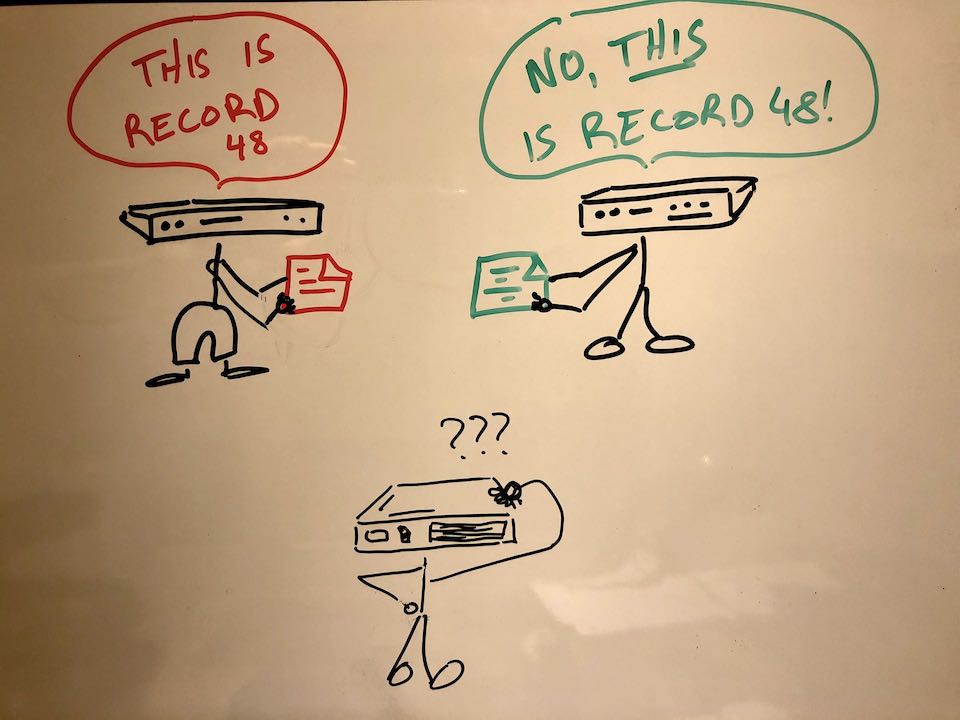 THIS IS
RECORD
48
NO, THIS
IS RECORD 48!
???